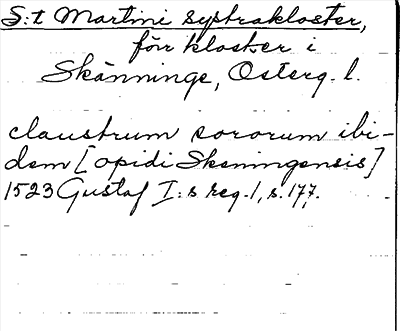 S:t Martini systrakloster,
förr kloster i
Skänninge, Österg. l.
claustrum sororum ibi-
dem [opidi Skeningensis]
1523 Gustaf I:s reg. 1, s. 177.